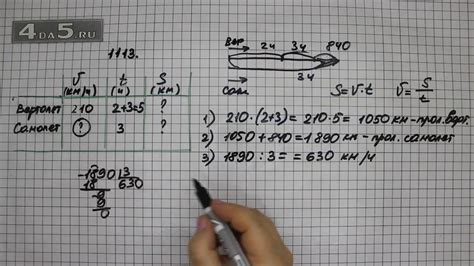 4DA5.RU
1113.
Верт. 2ч 3ч 840
3ч
Сам.
V (км/ч) t (ч) S (км)
Вертолет 210 2+3=5 ?
Самолет ? 3 ?
S=V·t V=S/t
1) 210·(2+3)=210·5=1050 км-прол. верт.
2) 1050+840=1890 км-прол. самолет
3) 1890:3= =630 км/ч
-1890 3
18 630
-9
9
0